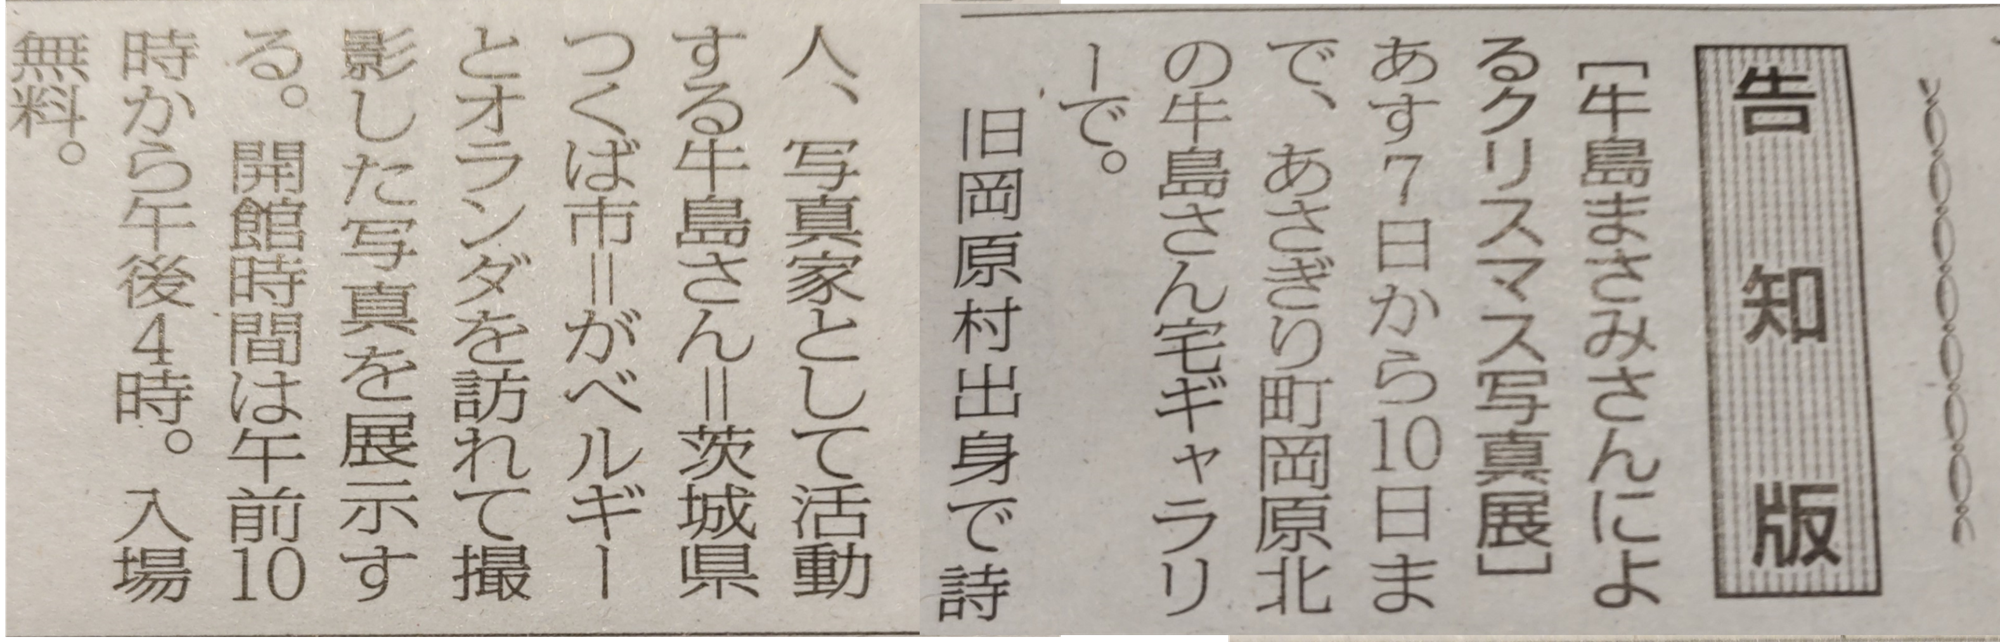 告知版
［牛島まさみさんによ
るクリスマス写真展］
あす7日から10日ま
で、あさぎり町岡原北
の牛島さん宅ギャラリ
ーで。
旧岡原村出身で詩
人、写真家として活動
する牛島さん＝茨城県
つくば市＝がベルギー
とオランダを訪れて撮
影した写真を展示す
る。開館時間は午前10
時から午後4時。入場
無料。